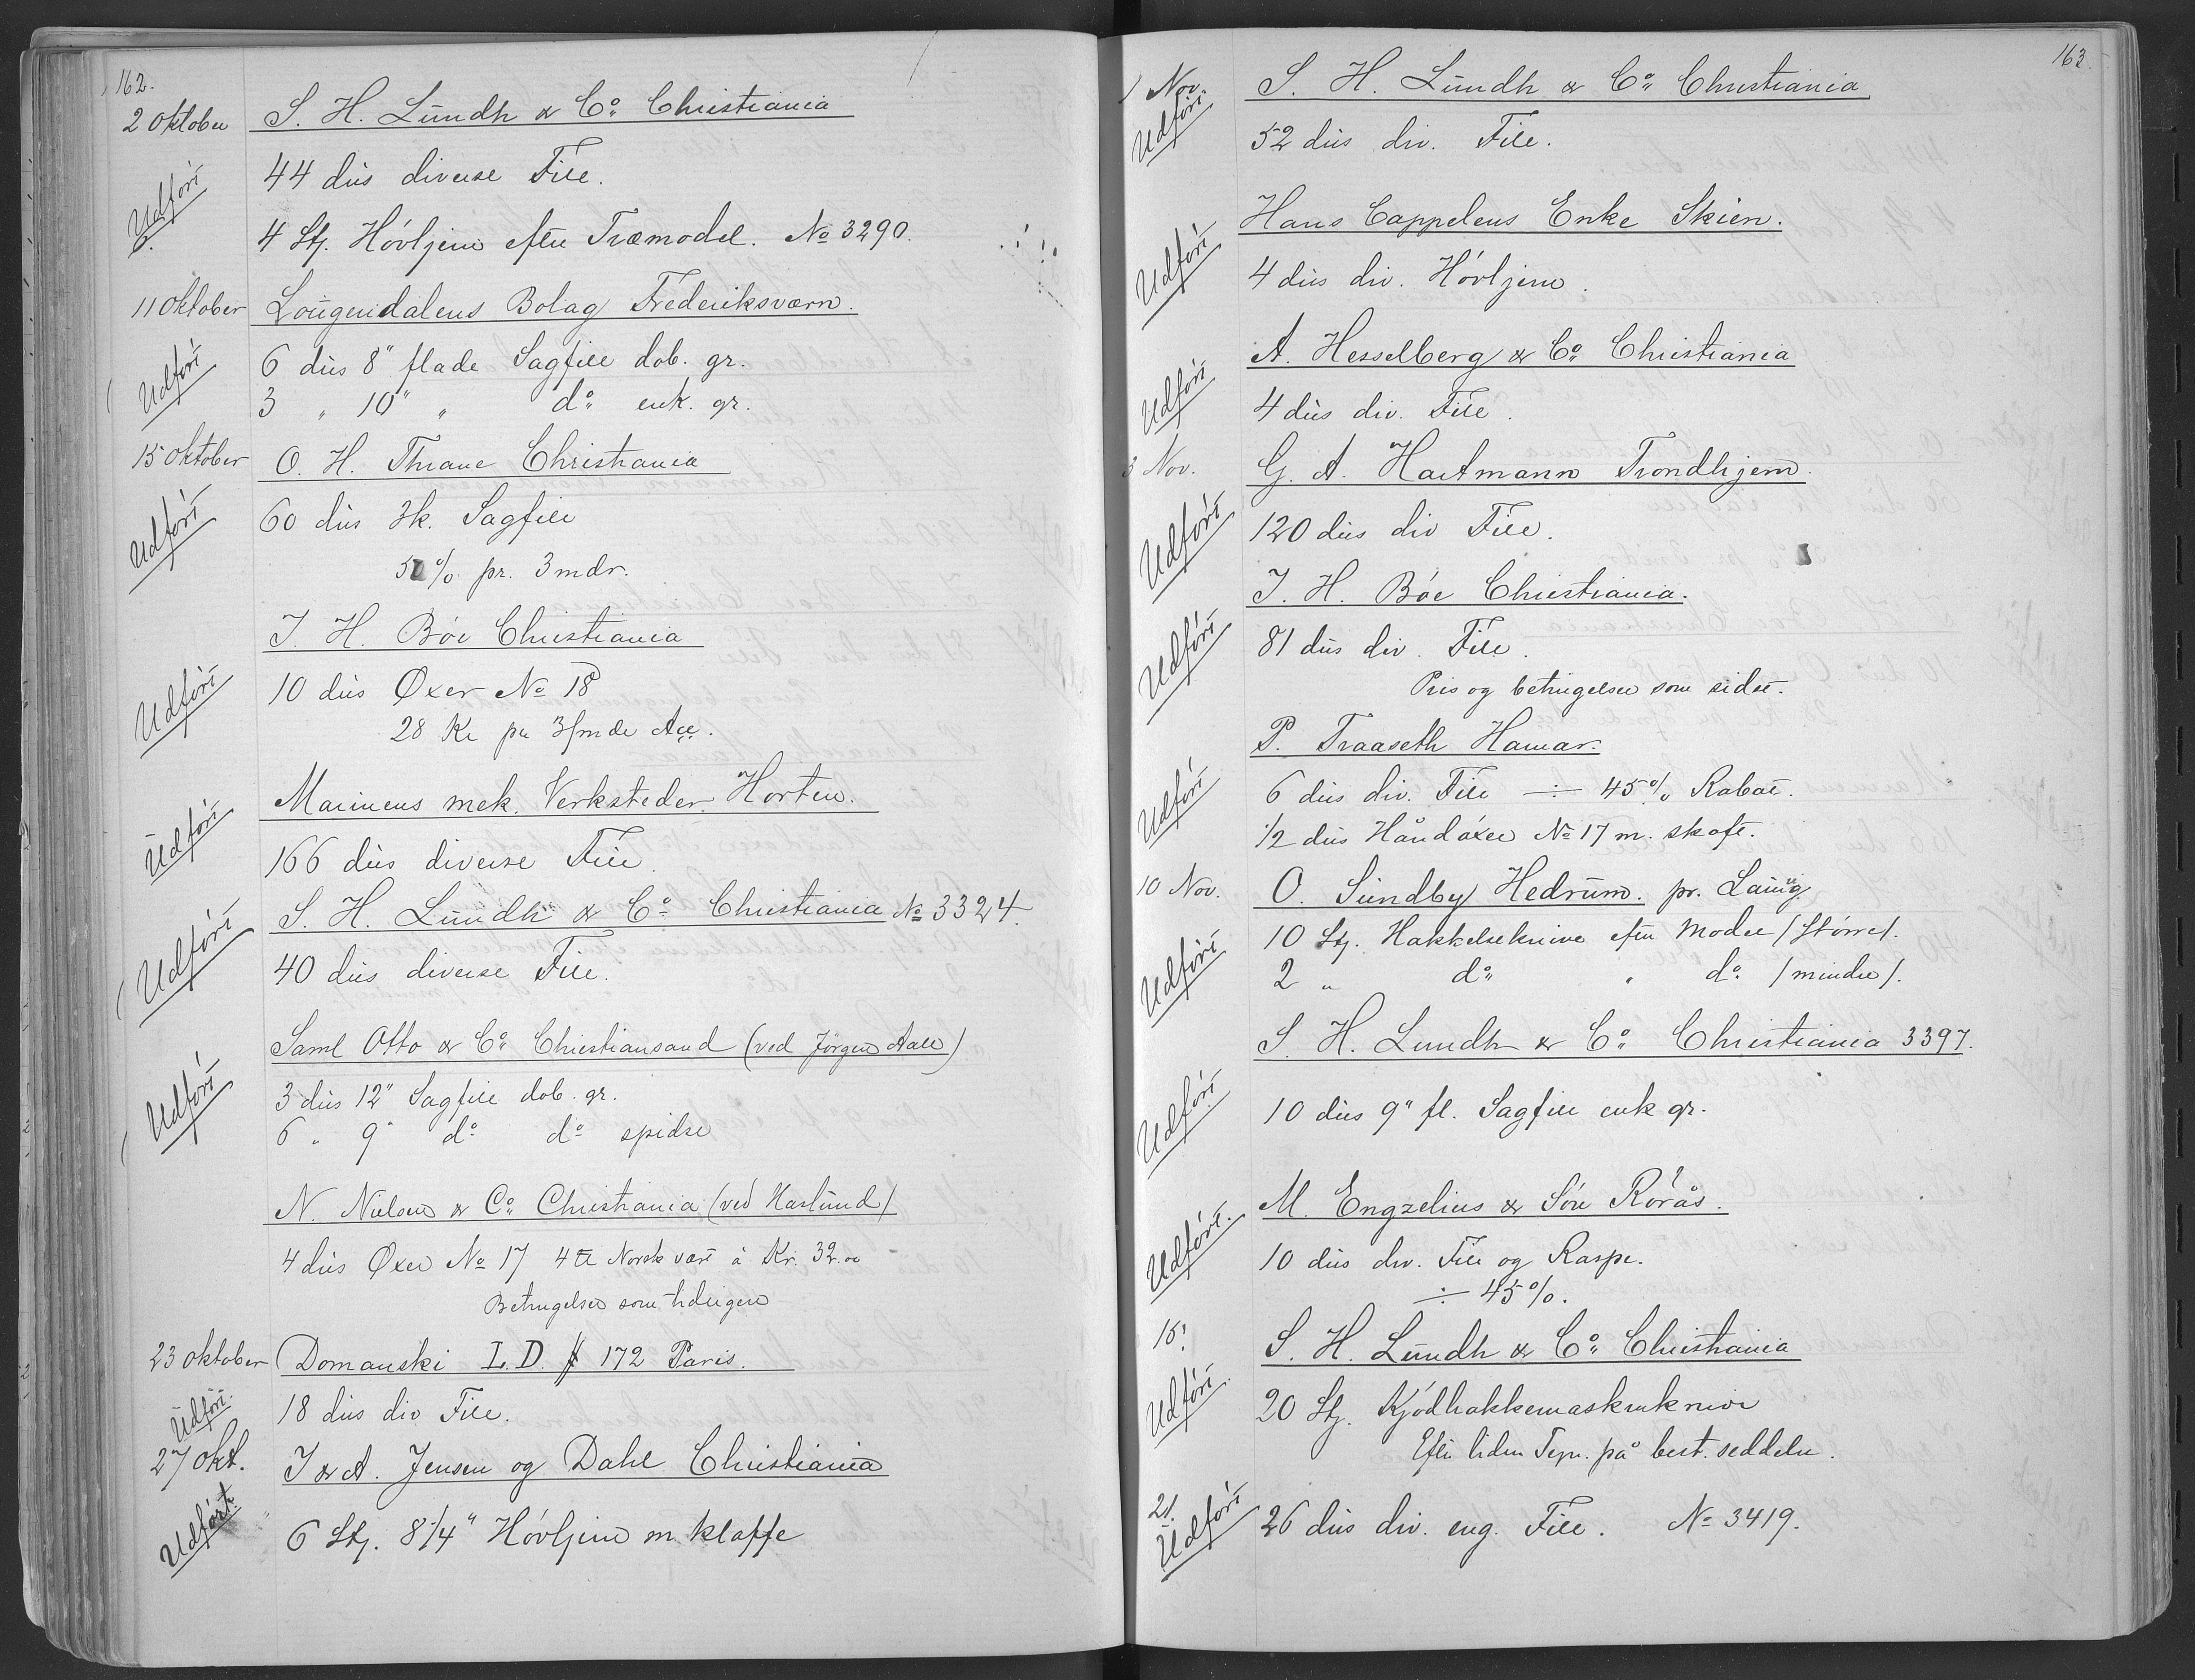 162.
2 Oktober S. H. Lundh & Co. Christiania
Udført 44 dus diverse File.
6. 4 Stj. Hövljern efter Træmodel. No 3290.
11 Oktober Lougendalens Bolag Frederiksværn.
Udført 6 dus 8" flade Sagfile dob. gr.
3 " 10" " do enk. gr.
15 Oktober O. H. Thrane Christiania
Udført 60 dus 3k. Sagfile
5 % pr. 3 mdr.
J. H. Böe Christiania
Udført 10 dus Øxer No 18
28 Kr pr 3/mde Acc.
Marinens mek. Verksteder Horten.
Udført 166 dus diverse File
S. H. Lundh & Co. Christiania No 3324.
Udført 40 dus diverse File.
Saml Otto & Co. Christiansand (ved Jörgen Aall)
Udført 3 dus 12" Sagfile dob. gr.
6 " 9" do do spidse
N. Nielsen & Co. Christiania (ved Haslund)
4 dus Øxer No 17 4 ℔ Norsk vægt à Kr. 32.00
Betingelser som tidligere
23 Oktober Domanski I. D. 172 Paris.
Udført 18 dus div File.
27 Okt. J & A. Jensen og Dahl Christiania
Udført 6 Stj. 8 1/4" Hövljern m klaffe
163.
1 Nov. S. H. Lundh & Co. Christiania
Udført 52 dus div. File.
Hans Cappelens Enke Skien.
Udført 4 dus div. Hövljern.
A. Hesselberg & Co. Christiania
Udført 4 dus div. File.
3 Nov. G. A. Hartmann Trondhjem.
Udført 120 dus div File.
J. H. Böe Christiania.
Udført 81 dus div. File.
Pris og betingelser som sidst.
P. Traaseth Hamar.
Udført 6 dus div. File ÷ 45% Rabat.
1/2 dus Håndöxer No 17 m. skaft.
10 Nov. O. Sundby Hedrum. pr. Laurvig
Udført 10 Stj. Hakkelseknive efter Model /Större/.
2 " do " do /mindre/.
S. H. Lundh & Co. Christiania 3397.
Udført 10 dus 9" fl. Sagfile enk gr.
M. Engzelius & Sön Rörås.
Udført. 10 dus div. File og Raspe.
÷ 45%.
15. S. H. Lundh & Co. Christiania
Udført. 20 Stj. Kjödhakkemaskinknive
Efter liden Tegn. på best. seddelen.
21. Udført 26 dus div. eng. File. No 3419.